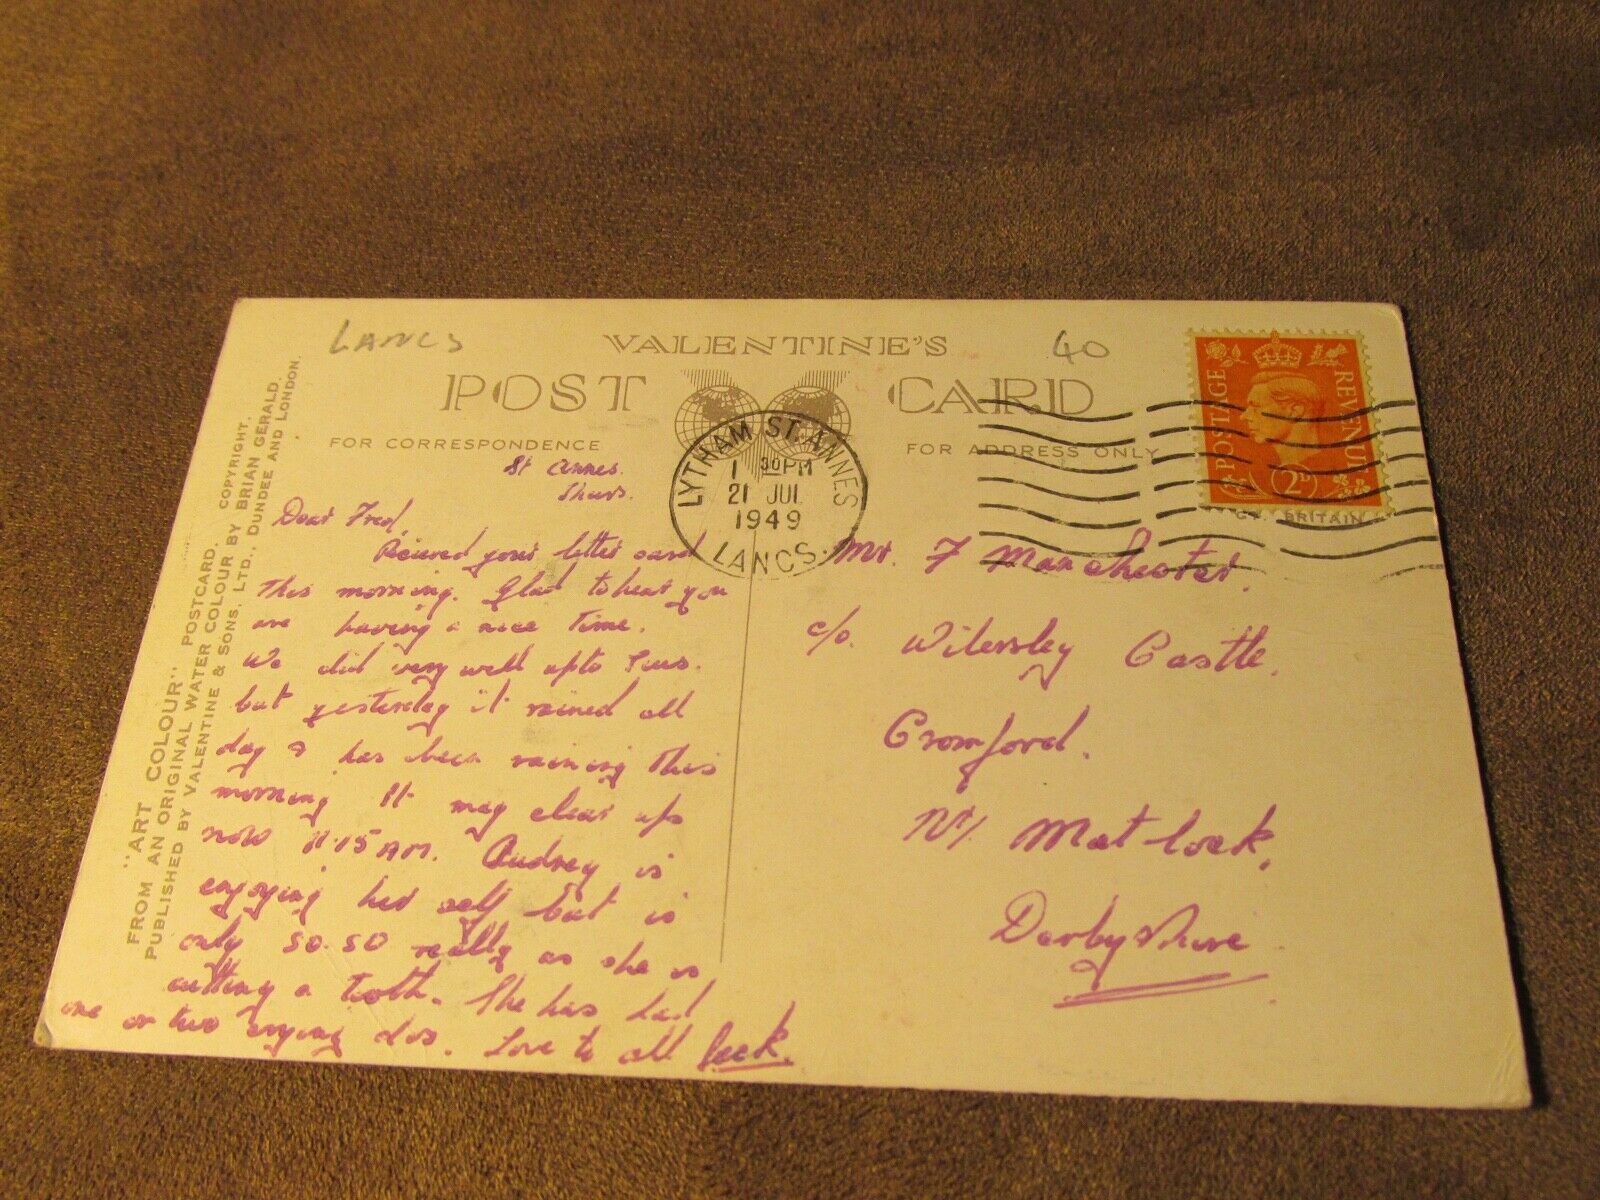 LANCS
VALENTINE'S
40
POST CARD
FOR CORRESPONDENCE
FOR ADDRESS ONLY
"ART COLOUR" POSTCARD.
FROM AN ORIGINAL WATER COLOUR BY BRIAN GERALD.
PUBLISHED BY VALENTINE & SONS, LTD., DUNDEE AND LONDON.
COPYRIGHT.
POSTAGE REVENUE
2D
GT. BRITAIN
LYTHAM ST. ANNES
1 30 PM
21 JUL
1949
LANCS.
St Annes.
Thurs.
Dear Fred,
Recieved your letter card
this morning. Glad to hear you
are having a nice time.
We did very well upto Tues.
but yesterday it rained all
day & has been raining this
morning It may clear up
now 11.15 AM. Audrey is
enjoying her self but is
only so. so really as she is
cutting a tooth. She has had
one or two crying dos. Love to all
Mr. F Manchester.
c/o. Wilersley Castle,
Cromford.
Nr. Matlock,
Derbyshire